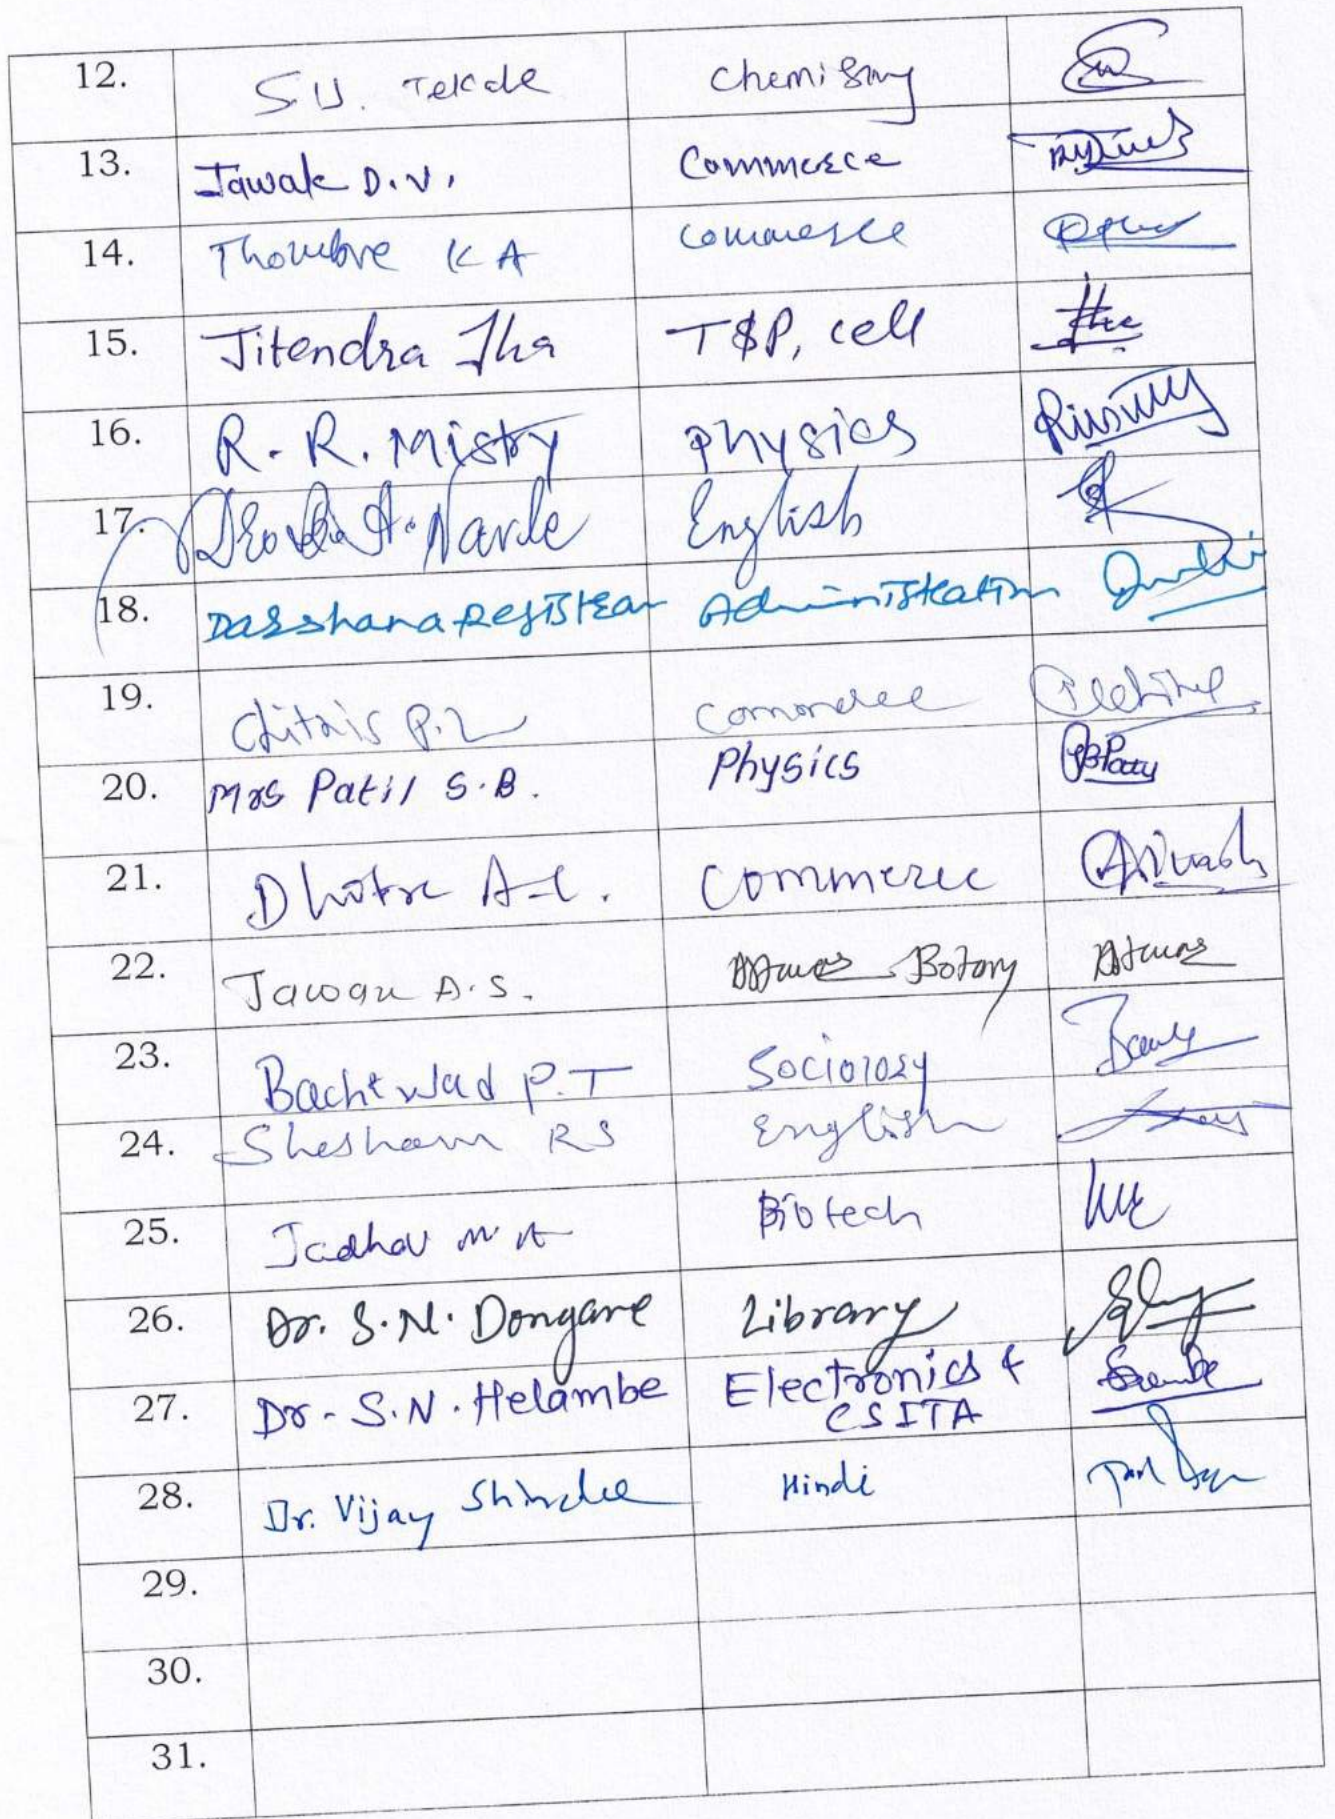 12. S.U. Tekale Chemistry
13. Jawale D.V. Commerce
14. Thombre K A Commerce
15. Jitendra Jha T&P, cell
16. R. R. Mistry Physics
17. A. Navle English
18. Darshana Registrar Administration
19. Chitnis P.L Commerce
20. Mrs Patil S.B. Physics
21. Dhotre A.C. Commerce
22. Jawane A.S. Botany
23. Bachewad P.T Sociology
24. Shesham RS English
25. Jadhav M A Biotech
26. Dr. S.N. Dongare Library
27. Dr. S.N. Helambe Electronics &
CSITA
28. Dr. Vijay Shinde Hindi
29.
30.
31.